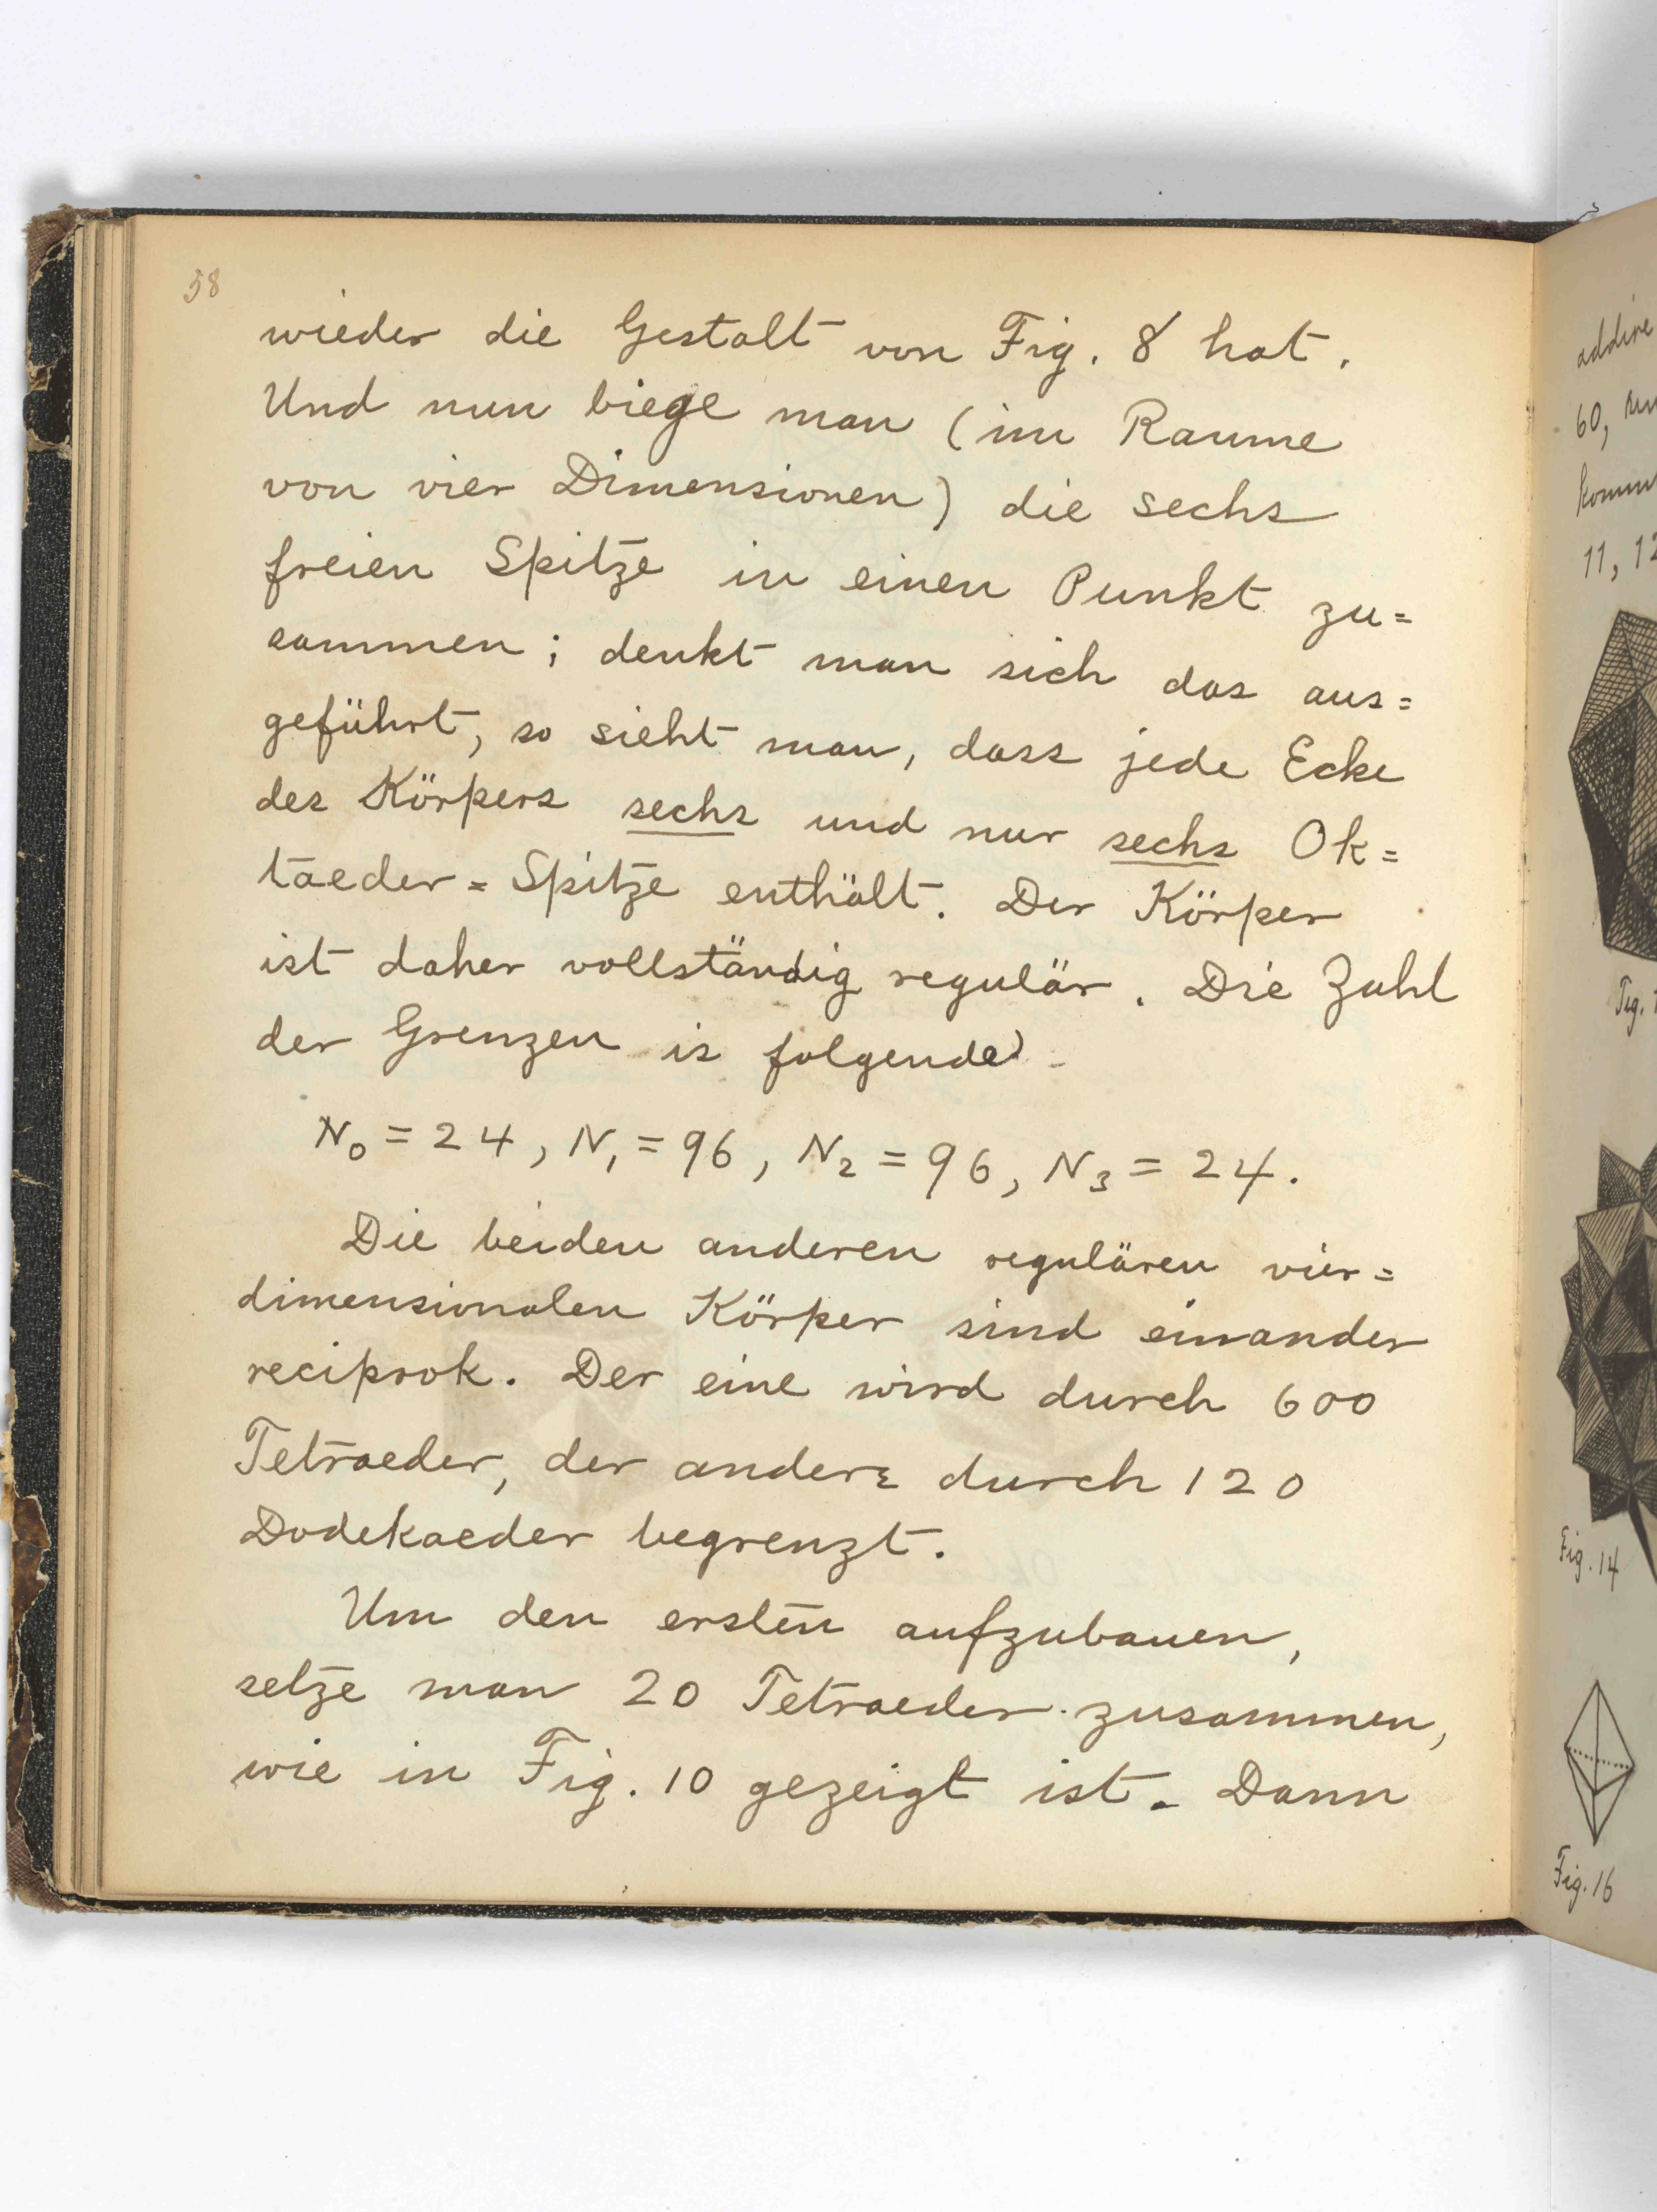 58
wieder die Gestalt von Fig. 8 hat.
Und nun biege man (im Raume
von vier Dimensionen) die sechs
freien Spitze in einen Punkt zu=
sammen; denkt man sich das aus=
geführt, so sieht man, dass jede Ecke
des Körpers sechs und nur sechs Ok=
taeder=Spitze enthält. Der Körper
ist daher vollständig regulär. Die Zahl
der Grenzen is folgende
N₀ = 24, N₁ = 96, N₂ = 96, N₃ = 24.
Die beiden anderen regulären vier=
dimensionalen Körper sind einander
reciprok. Der eine wird durch 600
Tetraeder, der andere durch 120
Dodekaeder begrenzt.
Um den ersten aufzubauen,
setze man 20 Tetraeder zusammen,
wie in Fig. 10 gezeigt ist. Dann
addire
60,
11, 12
Fig. 1
Fig. 14
Fig. 16